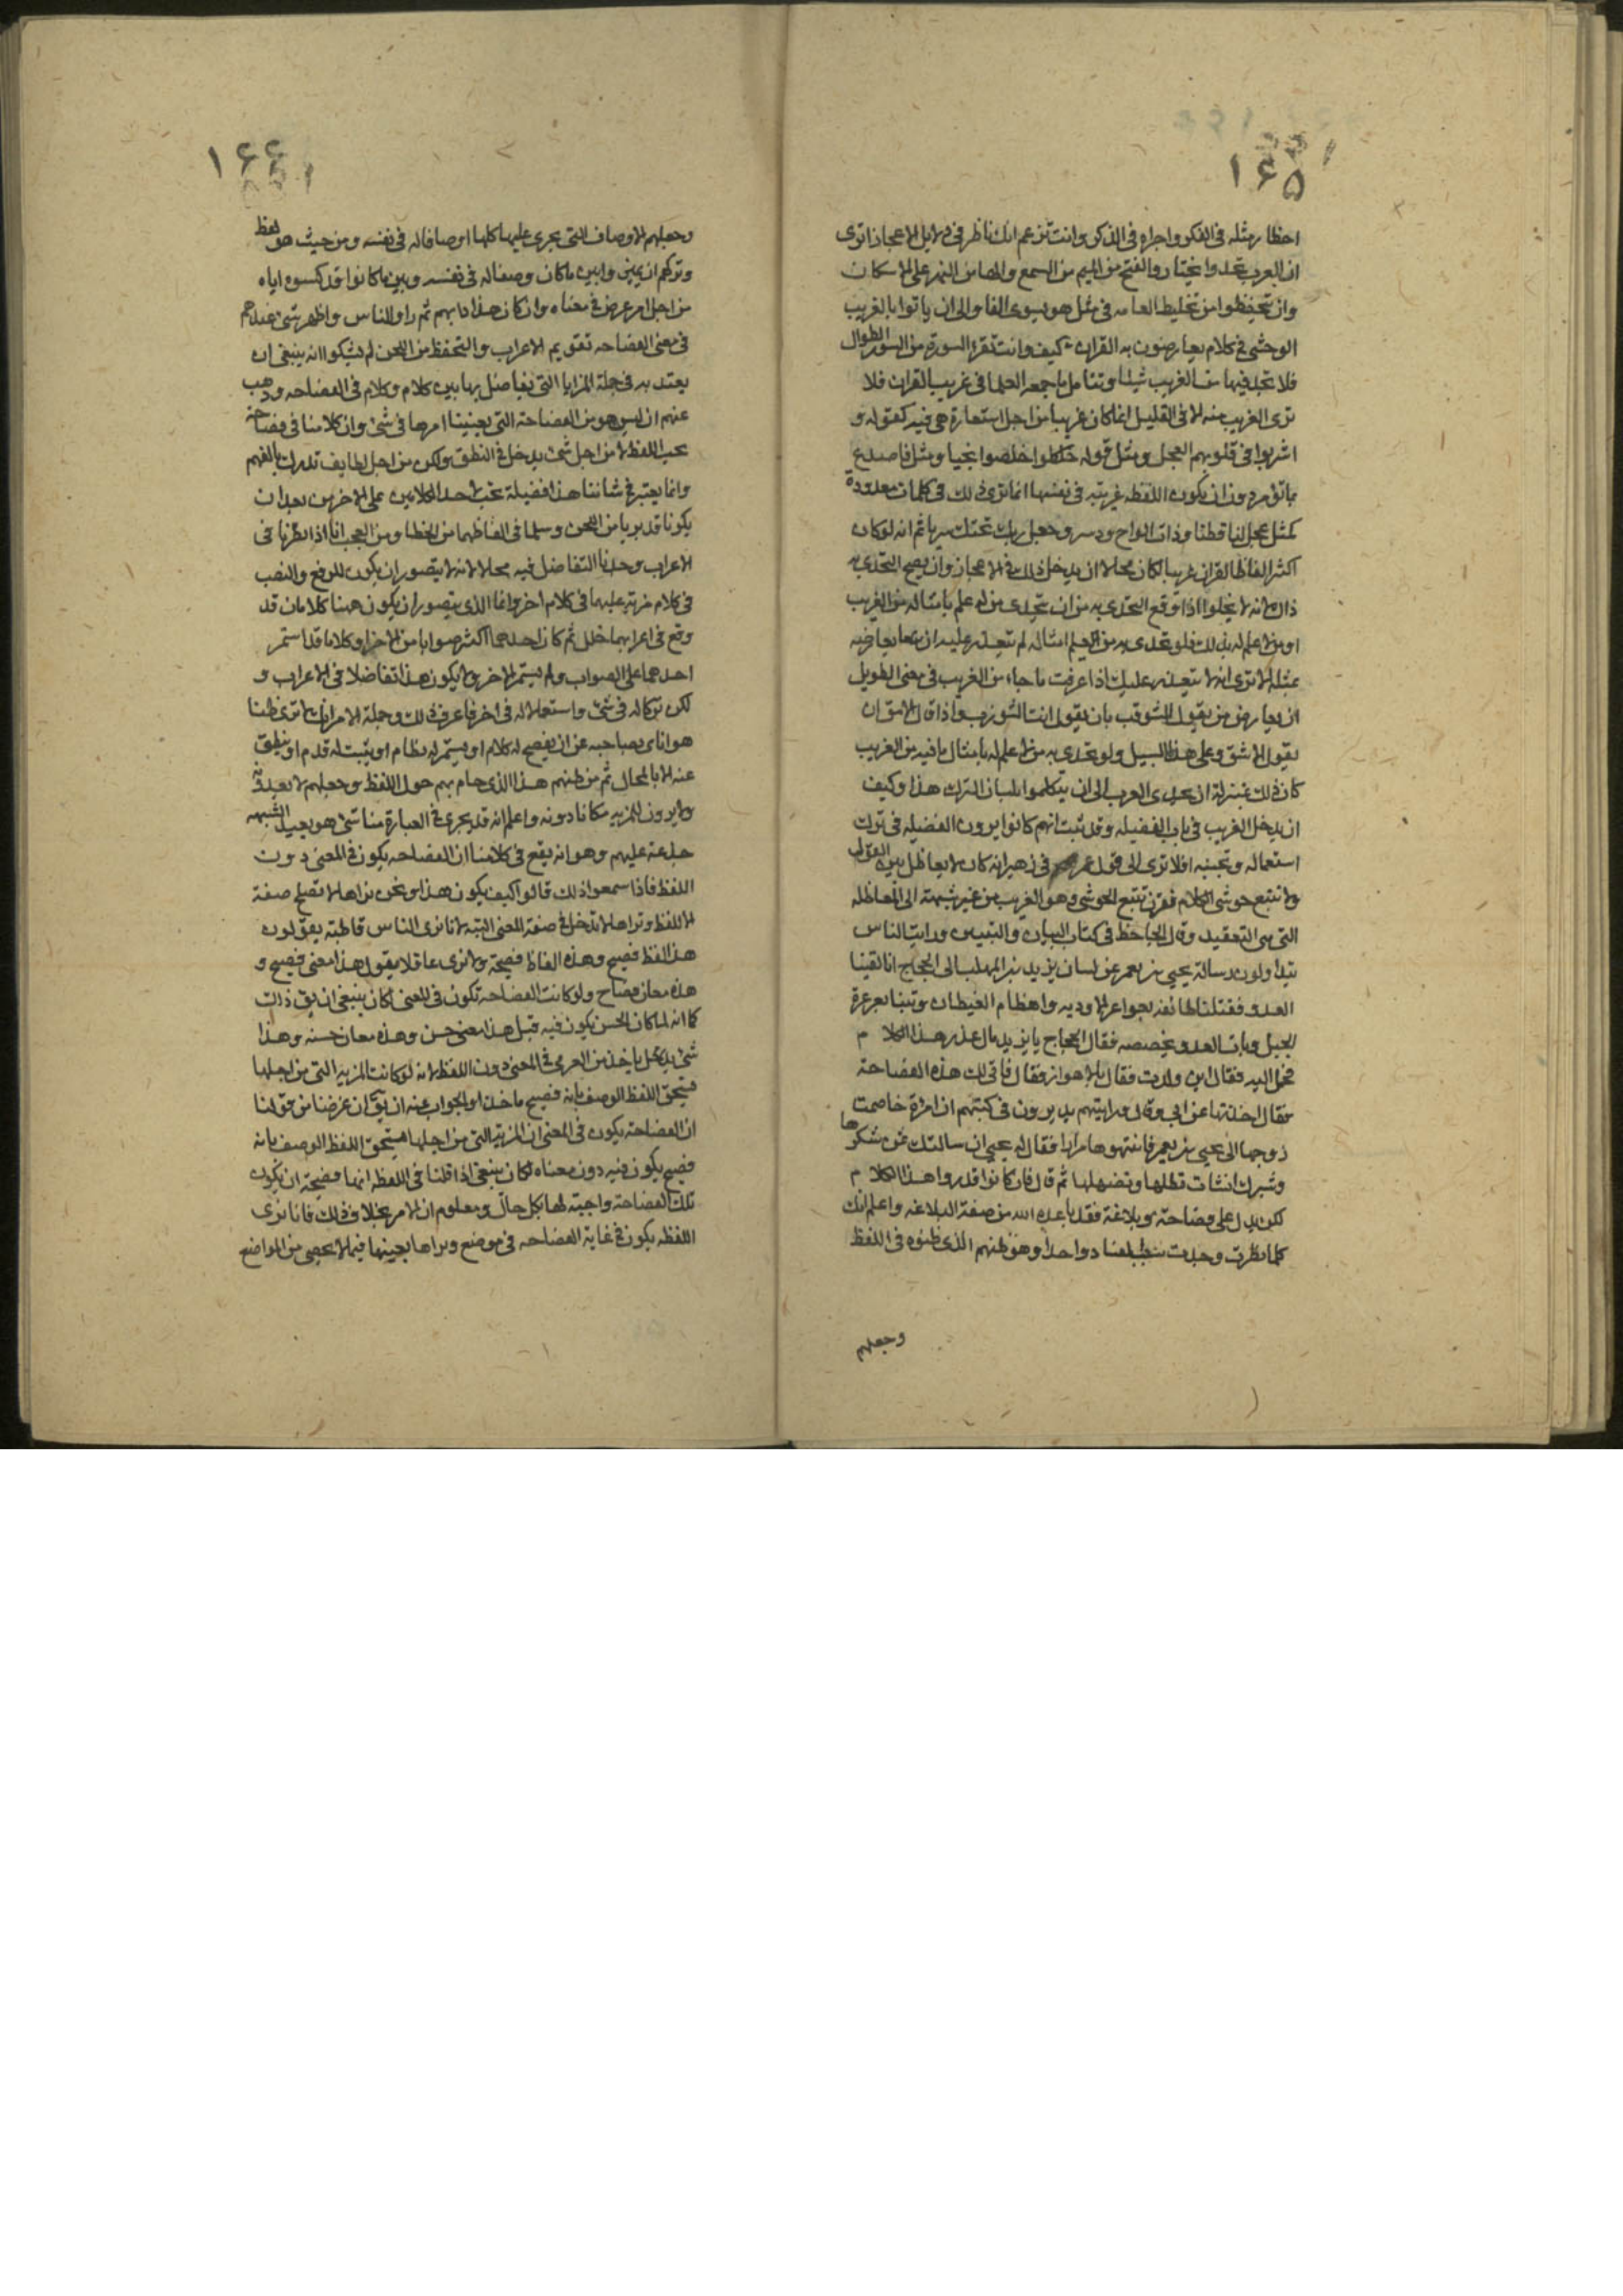 ١٦٥
اخطار مثله فى الفكر واجراه فى الذكر وانت تزعم انك ناظر فى دلايل الاعجاز اترى
ان العرب تحدوا يختاروا الفتح من الميم من السمع والها من النهر على الاسكان
وان تحفظوا من تخليط العامه فى مثل هو يسوى الفا والى ان ياتوا بالغريب
الوحشى فى كلام يعارضون به القران كيف وانت تقرء السورة من السور الطوال
فلا تجد فيها من الغريب شيئا وتتامل ما جمعه العلما فى غريب القران فلا
ترى الغريب منه الا فى القليل انما كان غريبا من اجل استعارة هى فيه كقوله و
اشربوا فى قلوبهم العجل ومثل قوله خلصوا نجيا ومثل فاصدع
بما تؤمر دون ان يكون اللفظه غريبه فى نفسها انما ترى ذلك فى كلمات معدودة
كمثل عجل لنا قطنا وذات الواح ودسر وجعل ربك تحتك سريا ثم انه لو كان
اكثر الفاظ القران غريبا لكان محالا ان يدخل ذلك فى الاعجاز وان يصح التحدى به
ذاك لانه لا يخلوا اذا وقع التحدى به من ان يتحدى من له علم بامثاله من الغريب
او من لا علم له بذلك فلو تحدى به من العلم امثاله لم يتعذر عليه ان يعارضه
بمثله الا ترى انه لا يتعذر عليك اذا عرفت ما جاء من الغريب فى معنى الطويل
ان يعارض من يقول الشوقب بان يقول انت الشوزب واذا قال الامق ان
يقول الاشق وعلى هذا السبيل ولو تحدى به من لا علم له بامثال ما فيه من الغريب
كان ذلك بمنزلة ان يتحدى العرب الى ان يتكلموا بلسان الترك هذا وكيف
ان يدخل الغريب فى باب الفضيله وقد ثبت انهم كانوا يرون الفضيله فى ترك
استعماله وتجنبه افلا ترى الى قول عمر فى زهير انه كان لا يعاظل بين القول
ولا يتتبع حوشى الكلام فقرن تتبع الحوشى وهو الغريب من غير شبهة الى المعاظله
التى هى التعقيد وقال الجاحظ فى كتاب البيان والتبيين ورايت الناس
يتداولون رسالة يحيى بن يعمر عن لسان يزيد بن المهلب الى الحجاج انا لقينا
العدو فقتلنا طائفه بعواعر الاوديه واهضام الغيطان وبتنا بعرعرة
الجبل وبات العدو بحضيضه فقال الحجاج ما يزيد بابى عذر هذا الكلام
فحمل اليه فقال اين ولدت فقال بالاهواز فقال فانى لك هذه الفصاحة
فقال اخذتها عن ابى وقال ورايتهم يديرون فى كتبهم ان امرءة خاصمت
زوجها الى يحيى بن يعمر فانتهرها مرارا فقال له يحيى ان سالتك ثمن شكرها
وشبرك انشات تطلها وتضهلها ثم قال فان كانوا قد رووا هذا الكلام
لكى يدل على فصاحة وبلاغة فقد باعده الله من صفة البلاغه واعلم انك
كلما نظرت وجدت سبب الفساد واحدا وهو ظنهم الذى ظنوه فى اللفظ
وجعلهم
١٦٦
وجعلهم الاوصاف التى يجرى عليها كلها اوصافا له فى نفسه ومن حيث هو لفظ
وتركهم ان يميزوا بين ما كان وصفا له فى نفسه وبين ما كانوا قد كسوه اياه
من اجل امر عرض فى معناه وان كان هذا دابهم ثم راوا الناس واظهر شىء عندهم
فى معنى الفصاحه تقويم الاعراب والتحفظ من اللحن لم يشكوا انه ينبغى ان
يعتد به فى جملة المزايا التى يفاضل بها بين كلام وكلام فى الفصاحه وذهب
عنهم ان ليس هو من الفصاحة التى يعنينا امرها فى شىء وان كلامنا فى فصاحة
يجب اللفظ لا من اجل شىء يدخل فى النطق ولكن من اجل لطايف تدرك بالفهم
وانا يعتبر فى شاننا هذا فضيلة تجب لاحد الكلامين على الاخر من بعد ان
يكونا قد بريا من اللحن وسلما فى الفاظهما من الخطا ومن العجب انا اذا نظرنا فى
الاعراب وجدنا التفاضل فيه محالا لانه لا يتصور ان يكون للرفع والنصب
فى كلام مزيه عليهما فى كلام اخر وانما الذى يتصور ان يكون ههنا كلامان قد
وقع فى اعرابهما خلل ثم كان احدهما اكثر صوابا من الاخر او كلاما قد استمر
احدهما على الصواب ولم يستمر الاخر ولا يكون هذا تفاضلا فى الاعراب و
لكن تركا له فى شىء واستعمالا له فى اخر فاعرف ذلك وجملة الامر انك لا ترى ظنا
هو اناى بصاحبه عن ان يفصح له كلام او يستمر له نظام او يثبت له قدم او ينطق
عنه الا بالمحال ثم من ظنهم هذا الذى حام بهم حول اللفظ وجعلهم لا يعدونه
ولا يرون للمزيه مكانا دونه واعلم انه قد يجرى فى العبارة منا شىء هو يعيد الشبهه
جذعة عليهم وهو انه يقع فى كلامنا ان الفصاحه يكون فى المعنى دون
اللفظ فاذا سمعوا ذلك قالوا كيف يكون هذا ونحن نراها لا تصلح صفة
الا للفظ ونراها لا تدخل فى صفة المعنى البته لانا نرى الناس قاطبة يقولون
هذا لفظ فصيح وهذه الفاظ فصيحة ولا نرى عاقلا يقول هذا معنى فصيح و
هذه معان فصاح ولو كانت الفصاحه تكون فى المعنى لكان ينبغى ان يق ذلك
كما انه لما كان الحسن يكون فيه قيل هذا معنى حسن وهذه معان حسنه وهذا
شىء ياخذ من الغر فى المعنى دون اللفظ لانه لو كانت المزيه التى من اجلها
يستحق اللفظ الوصف بانه فصيح والجواب عنه ان يق ان غرضنا من قولنا
ان الفصاحة يكون فى المعنى ان المزية التى من اجلها يستحق اللفظ الوصف بانه
فصيح يكون فيه دون معناه لكان ينبغى اذا قلنا فى اللفظه انها فصيحة ان يكون
تلك الفصاحة واجبة لها بكل حال ومعلوم ان الامر بخلاف ذلك فانا نرى
اللفظه يكون فى غاية الفصاحه فى موضع ونراها بعينها فيما لا يحصى من المواضع